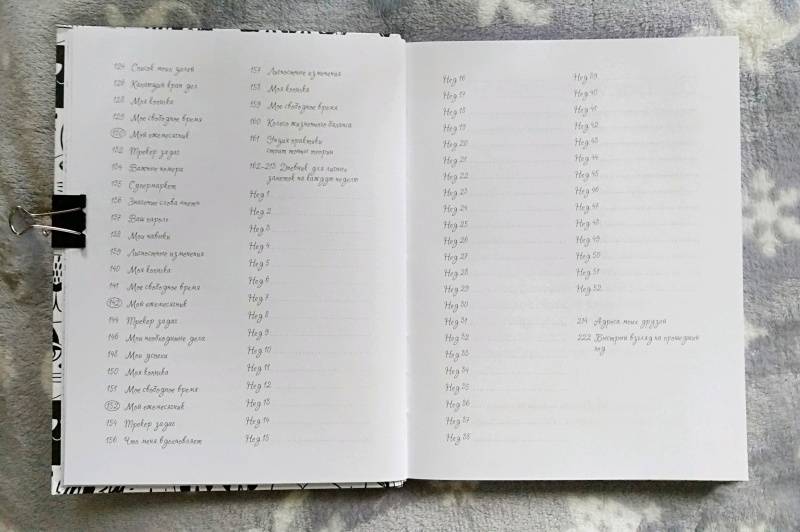 124 Список моих целей
126 Канатоций врап дел
128 Моя копилка
129 Мое свободное время
130 Мой ежемесячник
132 Трекер задач
134 Важные номера
135 Супермаркет
136 Значение слова «нет»
137 Ваш пароль
138 Мои навыки
139 Личностные изменения
140 Моя копилка
141 Мое свободное время
142 Мой ежемесячник
144 Трекер задач
146 Мои необходимые дела
148 Мои успехи
150 Моя копилка
151 Мое свободное время
152 Мой ежемесячник
154 Трекер задач
156 Что меня вдохновляет
157 Личностные изменения
158 Моя копилка
159 Мое свободное время
160 Колесо жизненного баланса
161 Унция практики
стоит тонны теории
162–213 Дневник для личных
заметок на каждую неделю
Нед 1
Нед 2
Нед 3
Нед 4
Нед 5
Нед 6
Нед 7
Нед 8
Нед 9
Нед 10
Нед 11
Нед 12
Нед 13
Нед 14
Нед 15
Нед 16
Нед 17
Нед 18
Нед 19
Нед 20
Нед 21
Нед 22
Нед 23
Нед 24
Нед 25
Нед 26
Нед 27
Нед 28
Нед 29
Нед 30
Нед 31
Нед 32
Нед 33
Нед 34
Нед 35
Нед 36
Нед 37
Нед 38
Нед 39
Нед 40
Нед 41
Нед 42
Нед 43
Нед 44
Нед 45
Нед 46
Нед 47
Нед 48
Нед 49
Нед 50
Нед 51
Нед 52
214 Адреса моих друзей
222 Быстрый взгляд на прошедший
год